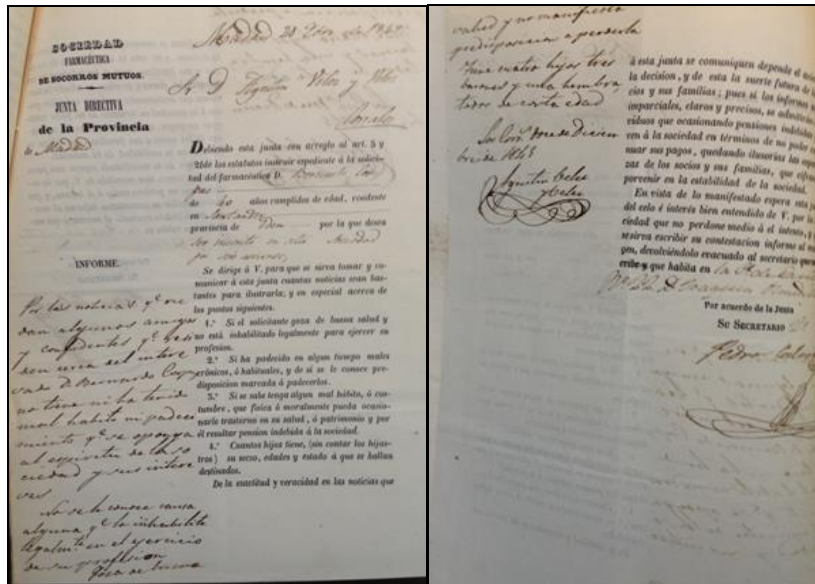 SOCIEDAD
FARMACÉUTICA
DE SOCORROS MUTUOS.
JUNTA DIRECTIVA
de la Provincia
de Madrid
Madrid 28
Sr. D. Agustin Velez y Velez
Debiendo esta junta con arreglo al art. 5 y
21 de los estatutos instruir expediente á la solici-
tud del farmacéutico D. Bernardo
de 40 años cumplidos de edad, residente
en Santander
provincia de Idem por la que desea
ser inscrito en esta Sociedad
por seis acciones
Se dirige á V. para que se sirva tomar y co-
municar á esta junta cuantas noticias sean bas-
tantes para ilustrarla, y en especial acerca de
los puntos siguientes.
1.º Si el solicitante goza de buena salud y
no está inhabilitado legalmente para ejercer su
profesion.
2.º Si ha padecido en algun tiempo males
crónicos, ó habituales, y de si se le conoce pre-
disposicion marcada á padecerlos.
3.º Si se sabe tenga algun mal hábito, ó cos-
tumbre, que física ó moralmente pueda ocasio-
narle trastorno en su salud, ó patrimonio y por
él resultar pension indebida á la sociedad.
4.º Cuantos hijos tiene, (sin contar los hijas-
tros) su secso, edades y estado á que se hallan
destinados.
De la exactitud y veracidad en las noticias que
INFORME.
Por las noticias q.e me
dan algunos amigos
y confidentes q.e resi
den cerca del intere
sado D. Bernardo
no tiene ni ha tenido
mal habito ni padeci
miento q.e se oponga
al espiritu de la so
ciedad y sus intere
ses
No se le conoce causa
alguna q.e le inhabilite
legalm.te en el ejercicio
de su profesion
Goza de buena
salud y no manifiesta
predisposicion a perderla
Tiene cuatro hijos tres
barones y una hembra
todos de corta edad
doce de Diciem
bre de 184
Agustin Velez
y Velez
á esta junta se comuniquen depende el
la decision, y de esta la suerte futura de
cios y sus familias; pues si los informes
imparciales, claros y precisos, se admitirian
viduos que ocasionando pensiones indebidas
ven á la sociedad en términos de no poder
nuar sus pagos, quedando ilusorias las espe
zas de los socios y sus familias, que cifran
porvenir en la estabilidad de la sociedad.
En vista de lo manifestado espera esta
del celo é interés bien entendido de V. por la
ciedad que no perdone medio á el intento, y
se sirva escribir su contestacion informe al
gen, devolviéndolo evacuado al secretario que
cribe y que habita en la
Por acuerdo de la Junta
Su Secretario
Pedro